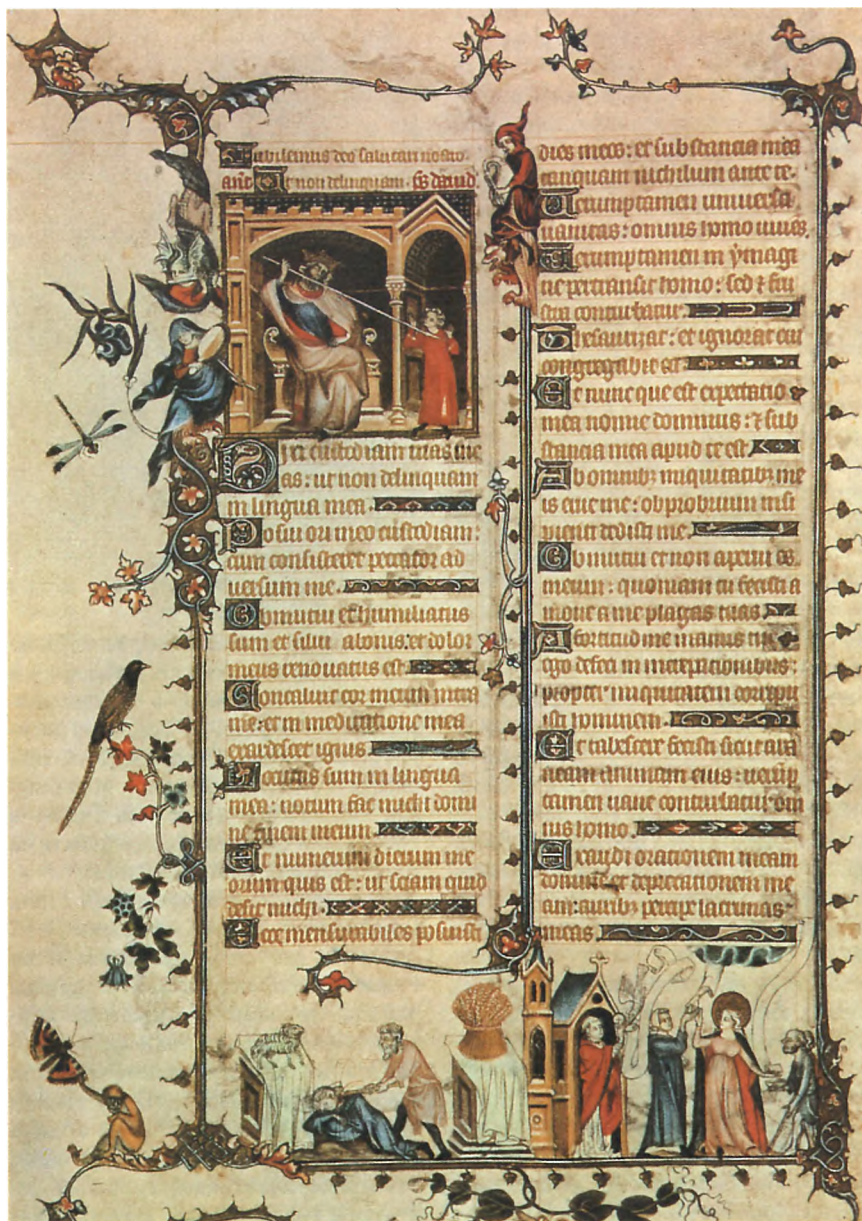 Jubilemus deo salutari nostro.
añt. Ut non delinquam. ps david
Dixi custodiam vias me
as: ut non delinquam
in lingua mea.
Posui ori meo custodiam:
cum consisteret peccator ad
versum me.
Obmutui et humiliatus
sum et silui a bonis: et dolor
meus renovatus est.
Concaluit cor meum intra
me: et in meditatione mea
exardescet ignis
Locutus sum in lingua
mea: notum fac michi domi
ne finem meum.
Et numerum dierum me
orum quis est: ut sciam quid
desit michi.
Ecce mensurabiles posuisti
dies meos: et substancia mea
tanquam nichilum ante te.
Verumptamen universa
vanitas: omnis homo vivens.
Verumptamen in ymagi
ne pertransit homo: sed &
conturbatur.
Thesaurizat: et ignorat cui
congregabit ea.
Et nunc que est expectatio
mea nonne dominus: & sub
stancia mea apud te est.
Ab omnibz iniquitatibz me
is erue me: obprobrium insi
pienti dedisti me.
Obmutui et non aperui os
meum: quoniam tu fecisti a
move a me plagas tuas
A fortitudine manus tue
ego defeci in increpationibus:
propter iniquitatem corripu
isti hominem.
Et tabescere fecisti sicut ara
neam animam eius: verūp
tamen vane conturbatur om
nis homo.
Exaudi orationem meam
domine et deprecationem me
am: auribz percipe lacrimas
meas.